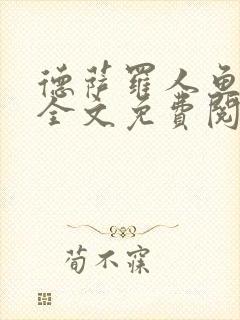 德萨罗人鱼
全文免费阅
荀不寐